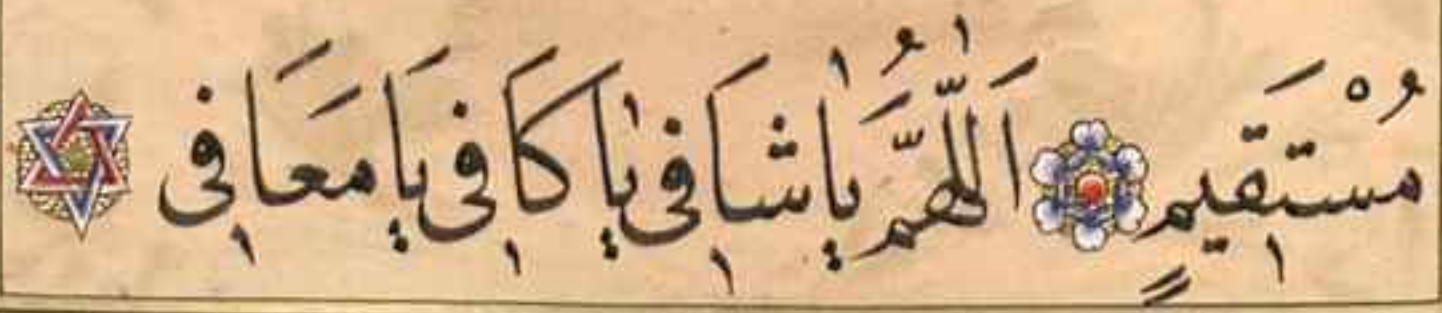 مُسْتَقِيمٍ اَللّٰهُمَّ يَا شَافِى يَا كَافِى يَا مَعَافِى